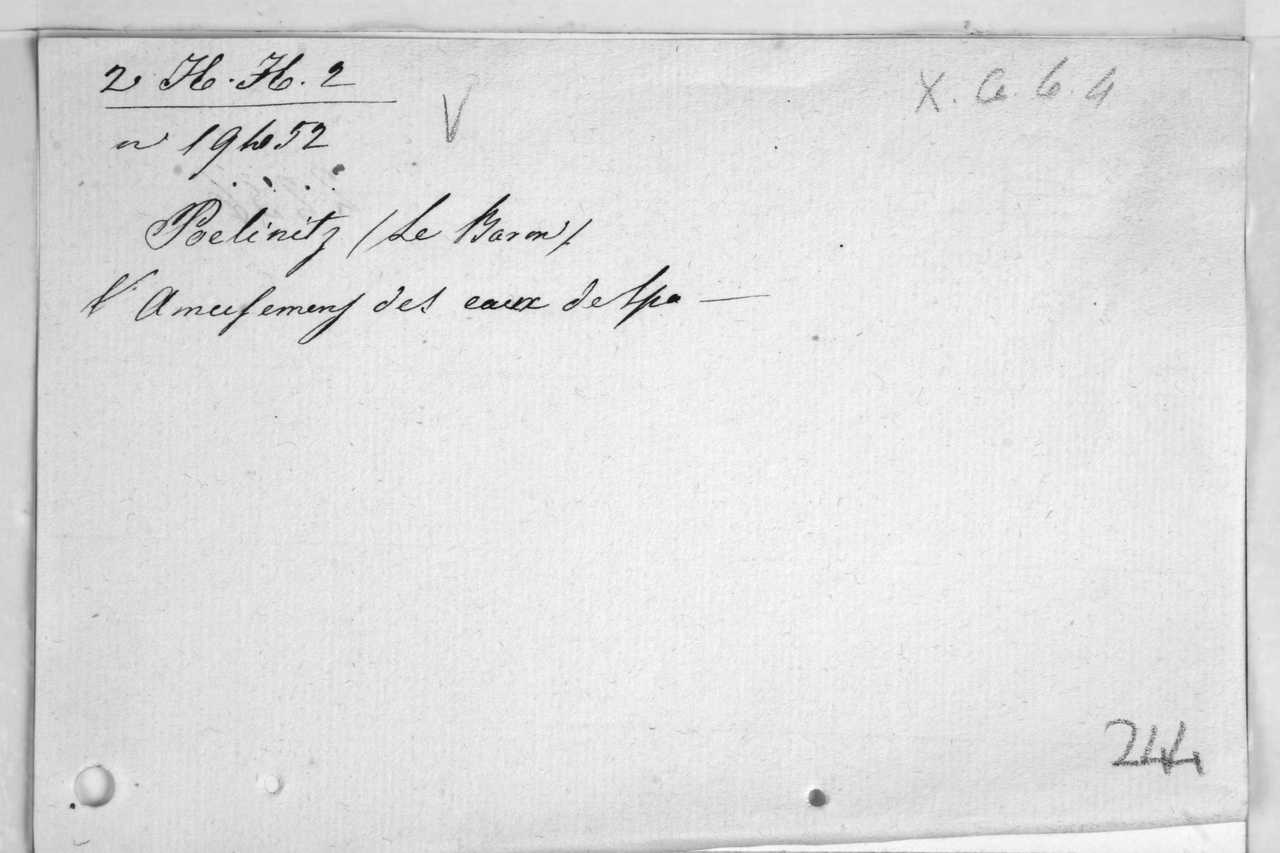 2 H. H. 2
X. G. 6. 4
V
n 19452
Poelinitz (Le Baron)
V. Amusemens des eaux de Spa —
244